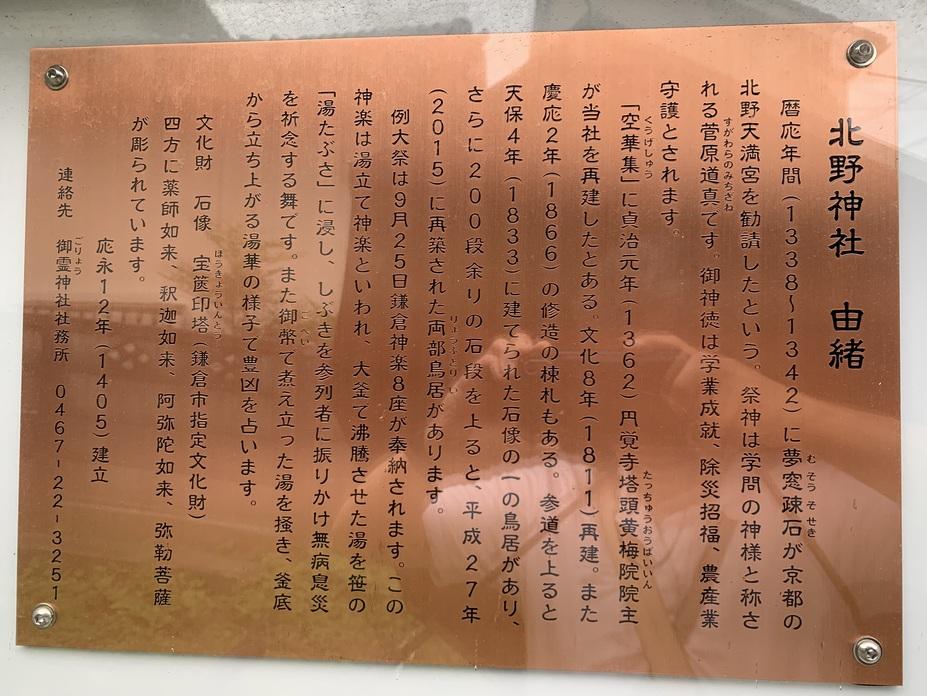 北野神社　由緒
暦応年間（1338～1342）に夢窓疎石が京都の
北野天満宮を勧請したという。祭神は学問の神様と称さ
れる菅原道真です。御神徳は学業成就、除災招福、農産業
守護とされます。
「空華集」に貞治元年（1362）円覚寺塔頭黄梅院院主
が当社を再建したとある。文化8年（1811）再建。また
慶応2年（1866）の修造の棟札もある。参道を上ると
天保4年（1833）に建てられた石像の一の鳥居があり、
さらに200段余りの石段を上ると、平成27年
（2015）に再築された両部鳥居があります。
例大祭は9月25日鎌倉神楽8座が奉納されます。この
神楽は湯立て神楽といわれ、大釜で沸騰させた湯を笹の
「湯たぶさ」に浸し、しぶきを参列者に振りかけ無病息災
を祈念する舞です。また御幣で煮え立った湯を掻き、釜底
から立ち上がる湯華の様子で豊凶を占います。
文化財　石像　宝篋印塔（鎌倉市指定文化財）
四方に薬師如来、釈迦如来、阿弥陀如来、弥勒菩薩
が彫られています。
応永12年（1405）建立
連絡先　御霊神社社務所　0467-22-3251